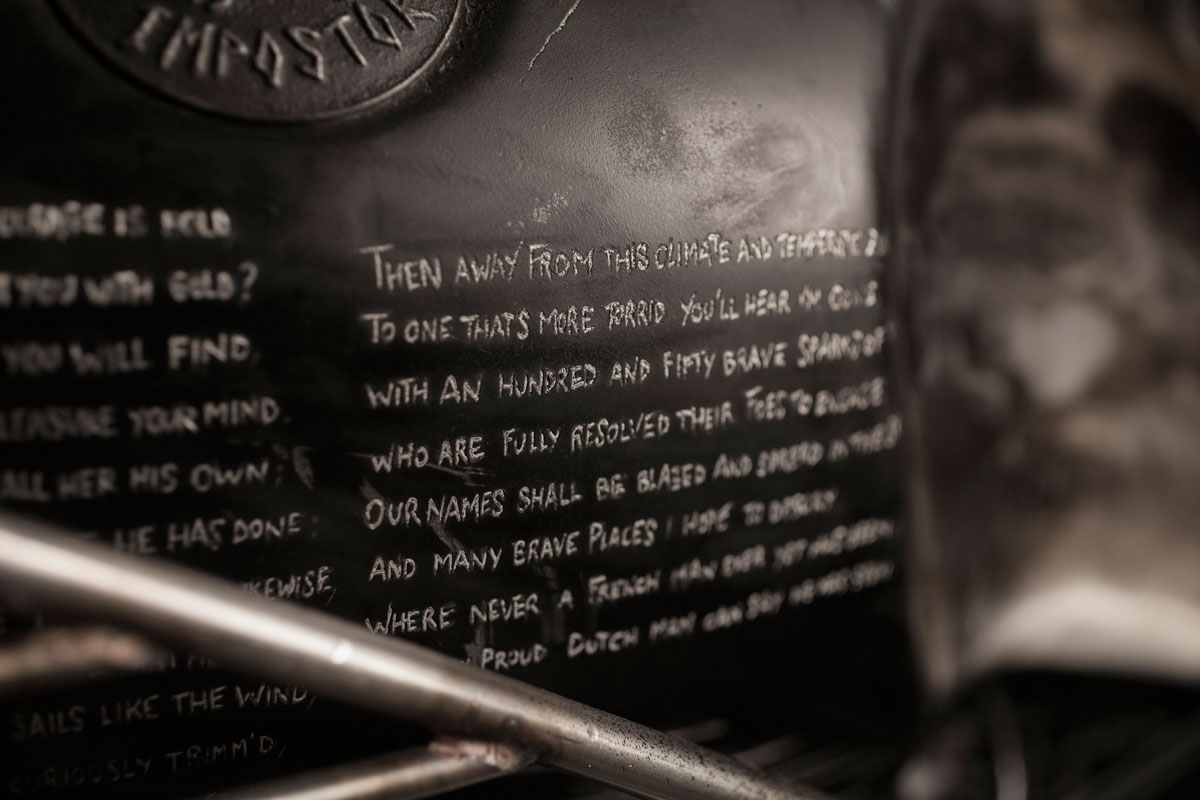 IMPOSTOR
IS HELD
YOU WITH GOLD?
YOU WILL FIND,
YOUR MIND.
ALL HER HIS OWN;
HE HAS DONE:
SAILS LIKE THE WIND,
CURIOUSLY TRIMM'D,
THEN AWAY FROM THIS CLIMATE AND TEMPERATE
TO ONE THATS MORE TORRID YOU'LL HEAR I'M GONE
WITH AN HUNDRED AND FIFTY BRAVE SPARKS OF
WHO ARE FULLY RESOLVED THEIR FOES TO ENGAGE
OUR NAMES SHALL BE BLAZED AND SPREAD IN THE
AND MANY BRAVE PLACES I HOPE TO DESCRY
WHERE NEVER A FRENCH MAN EVER YET HAS BEEN
PROUD DUTCH MAN CAN SAY HE HAS SEEN